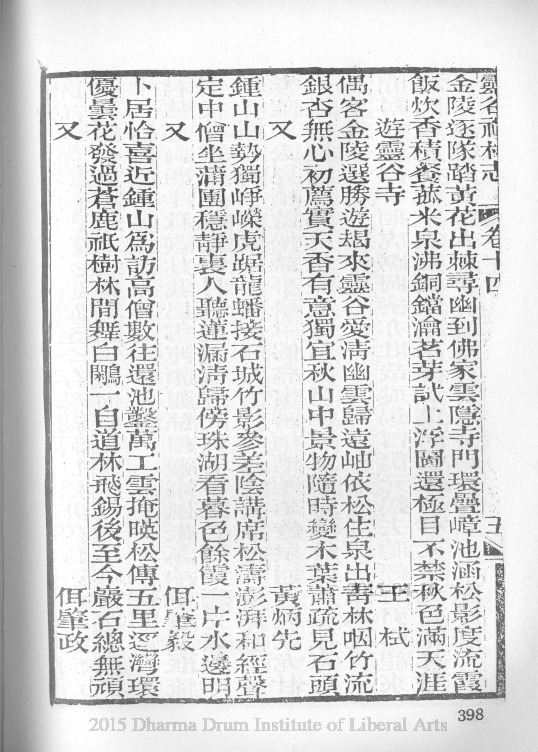 靈谷禪林志 卷十四 五
金陵逐隊踏黃花出棘尋幽到佛家雲隱寺門環疊嶂池涵松影度流霞
飯炊香積餐菰米泉沸銅鐺瀹茗芽試上浮圖還極目不禁秋色滿天涯
遊靈谷寺 王栻
偶客金陵選勝遊朅來靈谷愛清幽雲歸遠岫依松住泉出青林咽竹流
銀杏無心初薦實天香有意獨宜秋山中景物隨時變木葉蕭疏見石頭
又 黃炳先
鍾山山勢獨崢嶸虎踞龍蟠接石城竹影參差陰講席松濤澎湃和經聲
定中僧坐蒲團穩靜裏人聽蓮漏清歸傍珠湖看暮色餘霞一片水邊明
又 佴肇毅
卜居恰喜近鍾山為訪高僧數往還池鑿萬工雲掩暎松傳五里逕灣環
優曇花發過蒼鹿祇樹林間舞白鷳一自道林飛錫後至今巖石總無頑
又 佴肇政
398
2015 Dharma Drum Institute of Liberal Arts